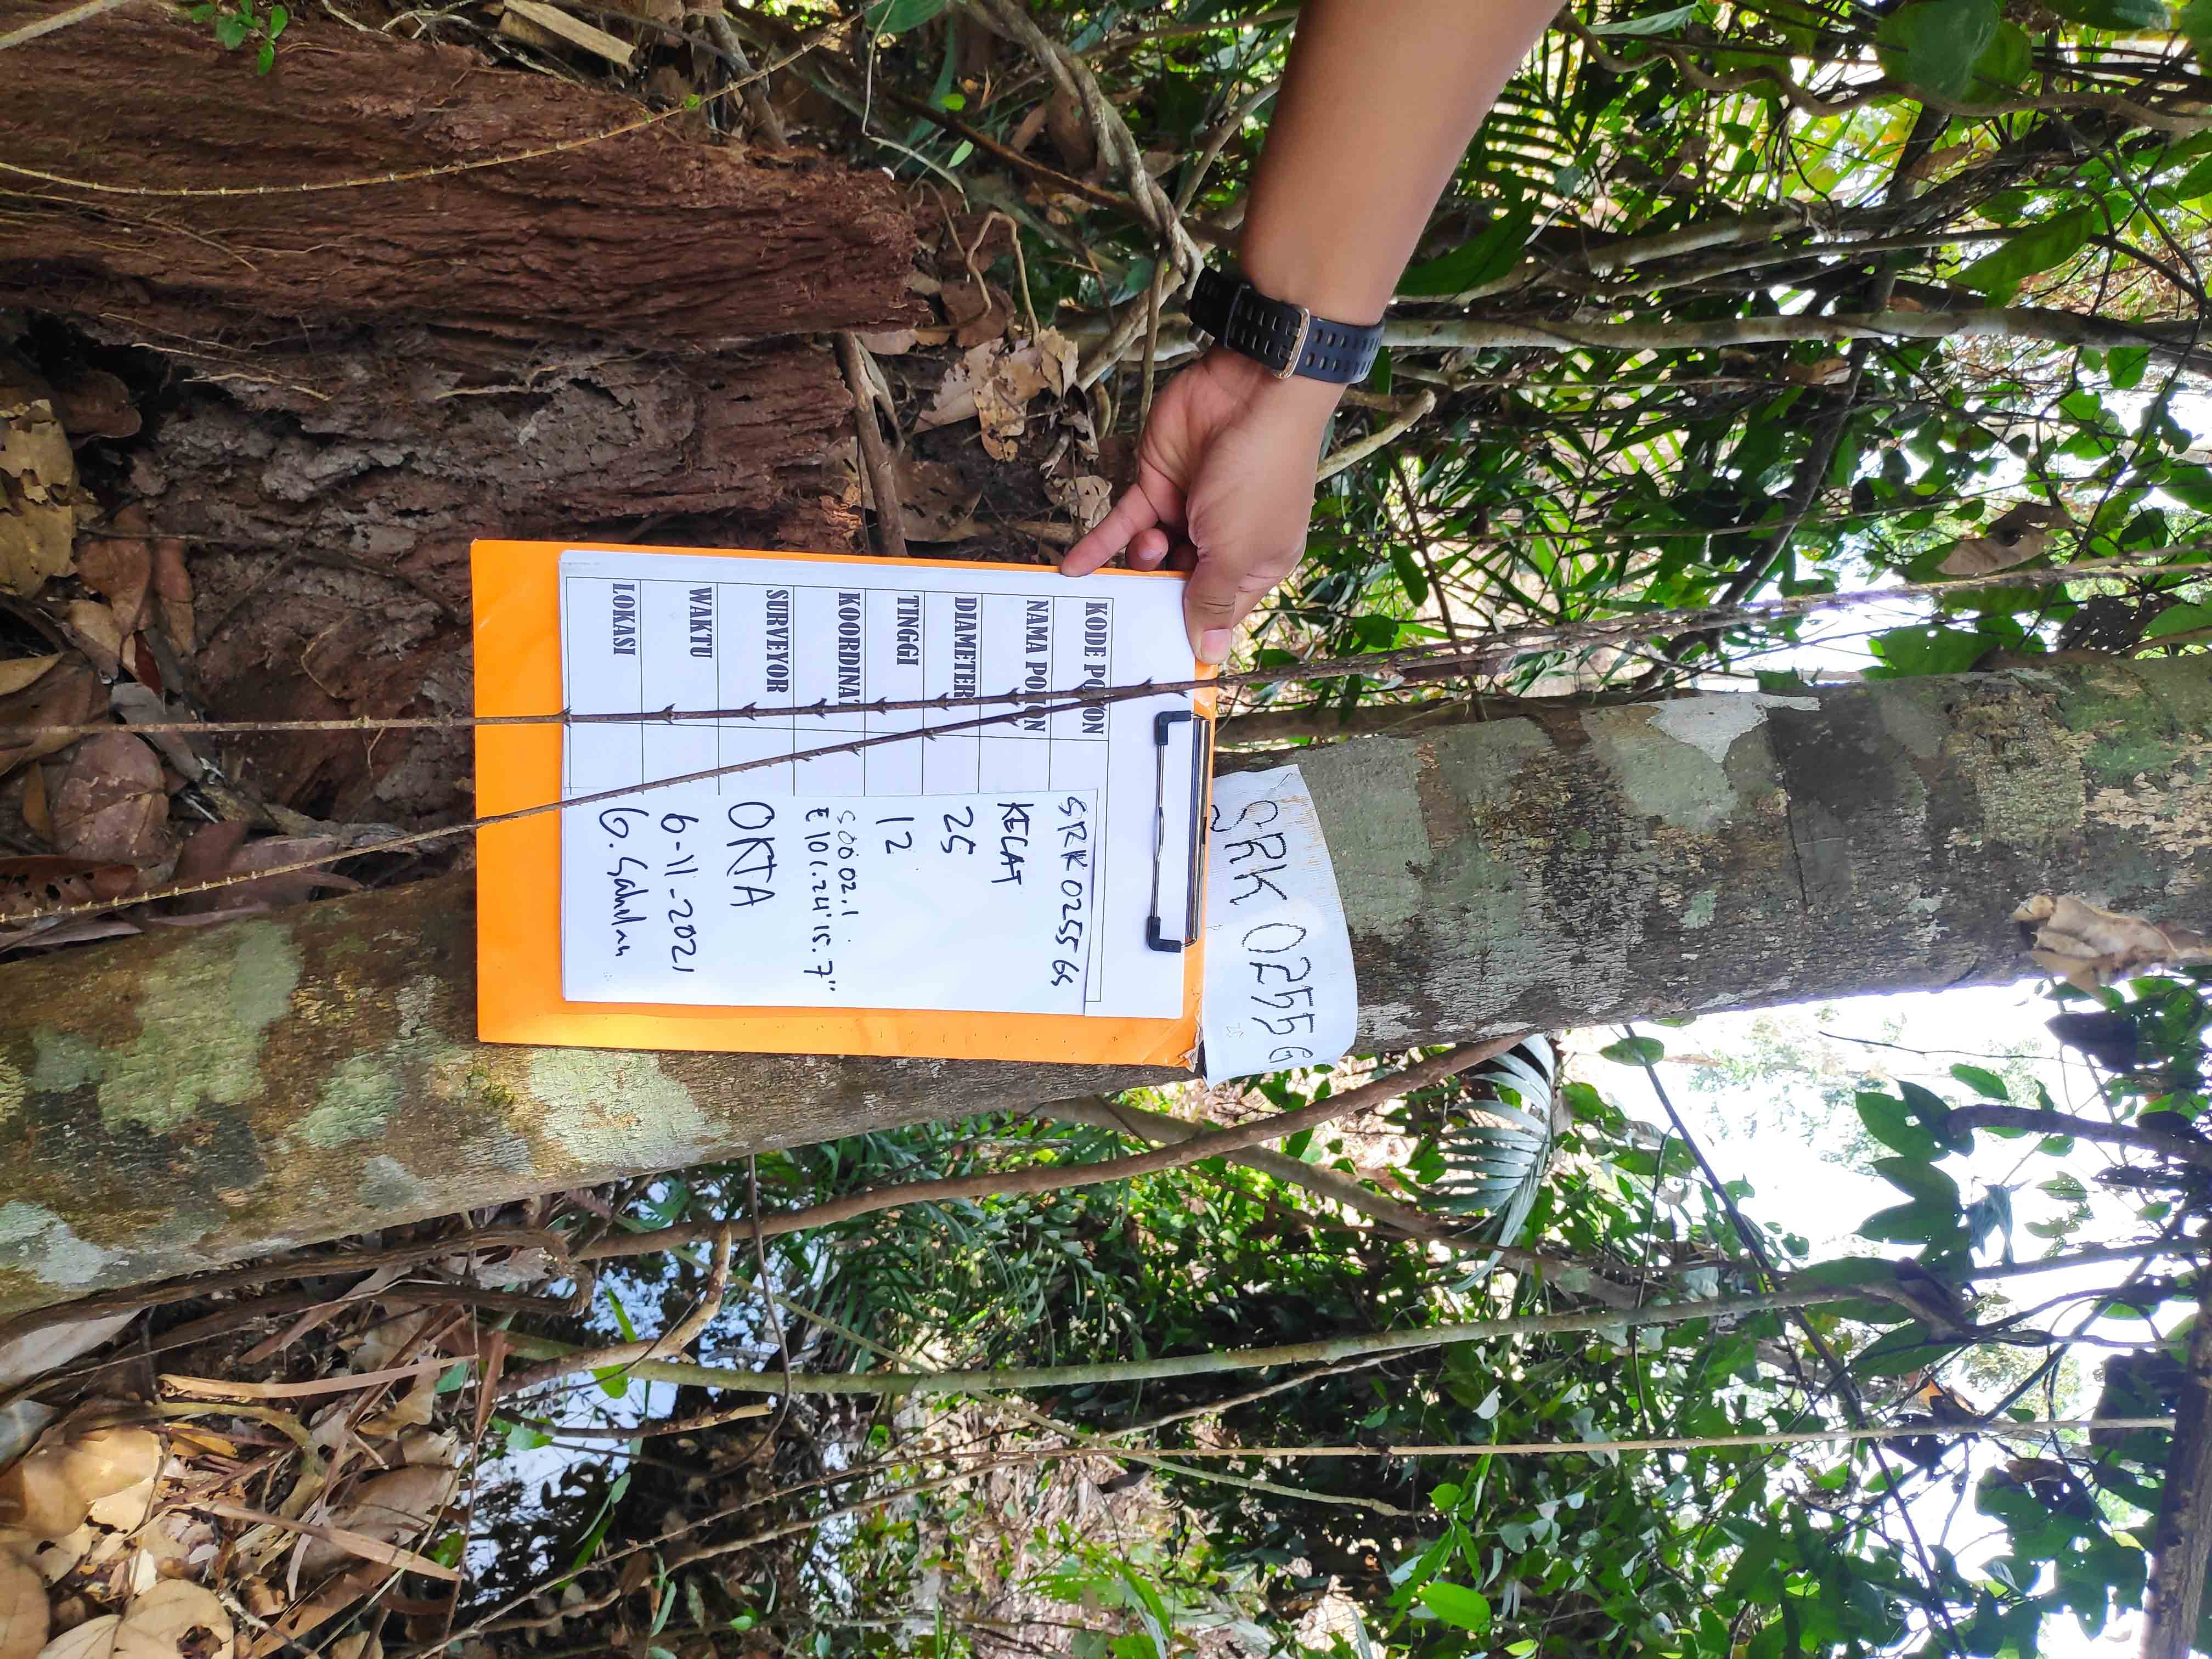 SRK 0255 G
KODE POHON SRK 0255 GS
NAMA POHON KELAT
DIAMETER 25
TINGGI 12
KOORDINAT S 00 02.1
E 101.24'15.7"
SURVEYOR OKTA
WAKTU 6-11-2021
LOKASI G. Sahilan